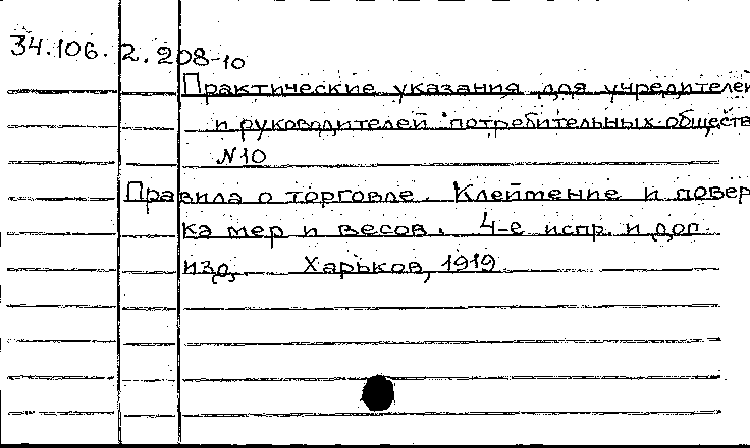 34.106.2.208-10
Практические указания для учредителей
и руководителей потребительных обществ
N10
Правила о торговле. Клеймение и повер
ка мер и весов. 4-е испр. и доп
изд. Харьков, 1919